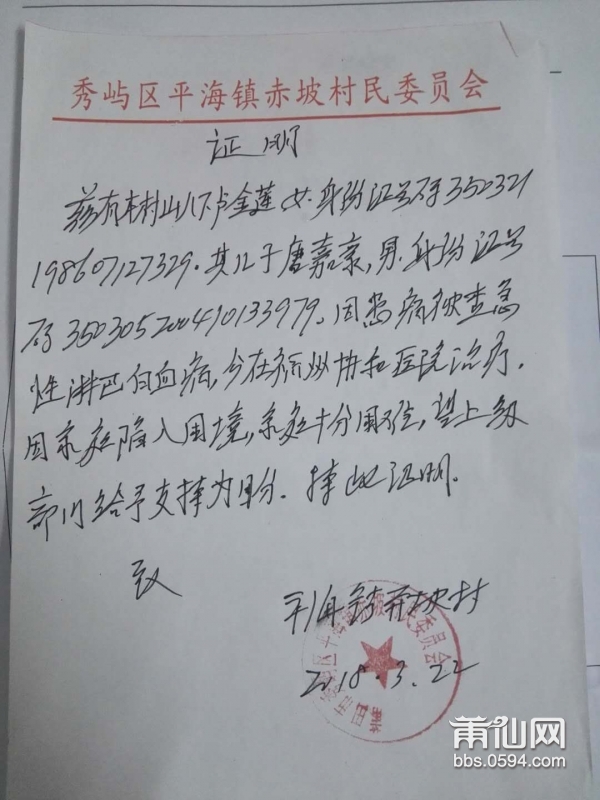 秀屿区平海镇赤坡村民委员会
证明
兹有本村山下卢金莲女.身份证号码350321
198607127329.其儿子唐嘉豪,男.身份证号
码350305200410133979.因患病被查急
性淋巴白血病,今在福州协和医院治疗.
因家庭陷入困境,家庭十分困难,望上级
部门给予支持为盼.特此证明.
致
平海镇赤坡村
2018.3.22
莆田市秀屿区平海镇赤坡村民委员会
莆仙网
bbs.0594.com